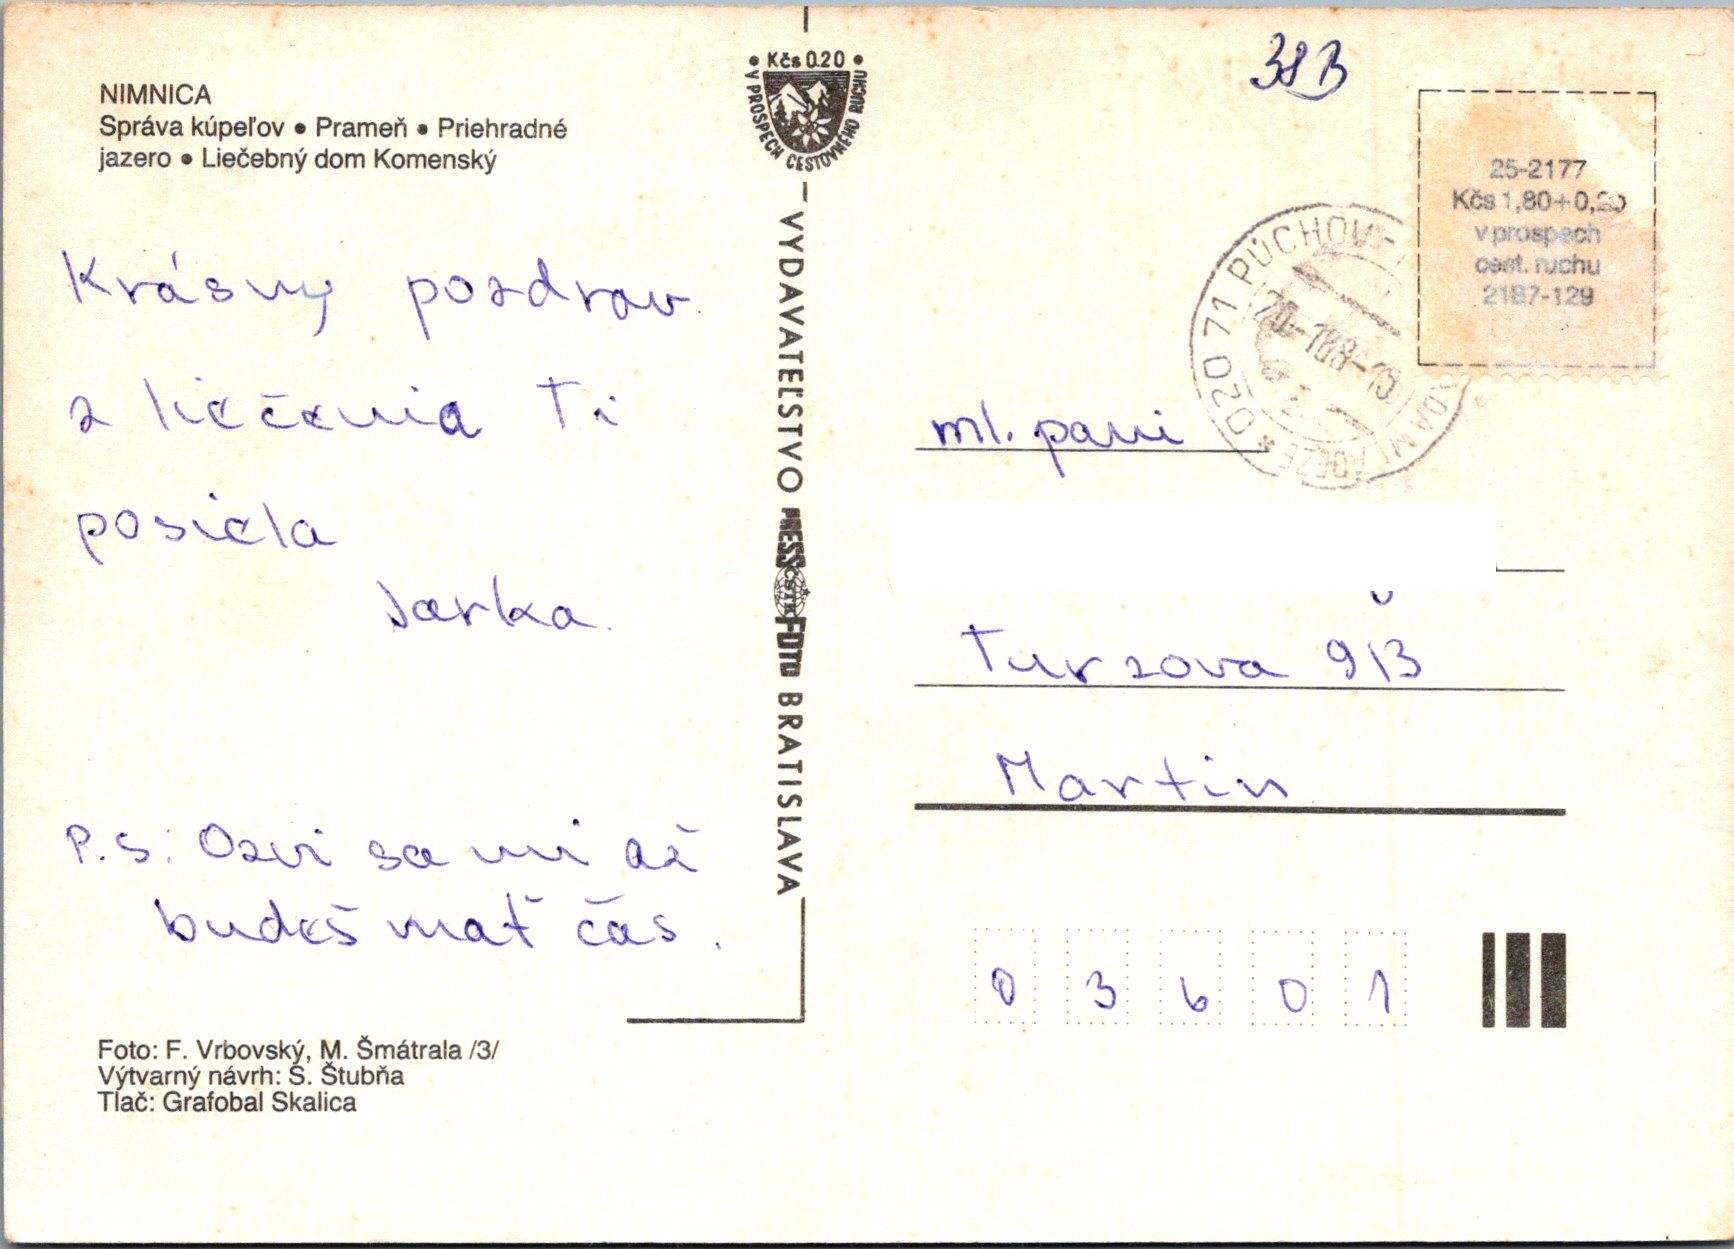 NIMNICA
Správa kúpeľov • Prameň • Priehradné
jazero • Liečebný dom Komenský
Krásny pozdrav
z liečenia Ti
posiela
Jarka.
P.S: Ozvi sa mi až
budeš mať čas.
Foto: F. Vrbovský, M. Šmátrala /3/
Výtvarný návrh: S. Štubňa
Tlač: Grafobal Skalica
• Kčs 0.20 •
V PROSPECH CESTOVNÉHO RUCHU
VYDAVATEĽSTVO PRESSFOTO BRATISLAVA
ČSTK
38B
25-2177
Kčs 1,80+0,20
v prospech
cest. ruchu
2187-129
020 71 PÚCHOV
ml. pani
Turzova 9/3
Martin
03601